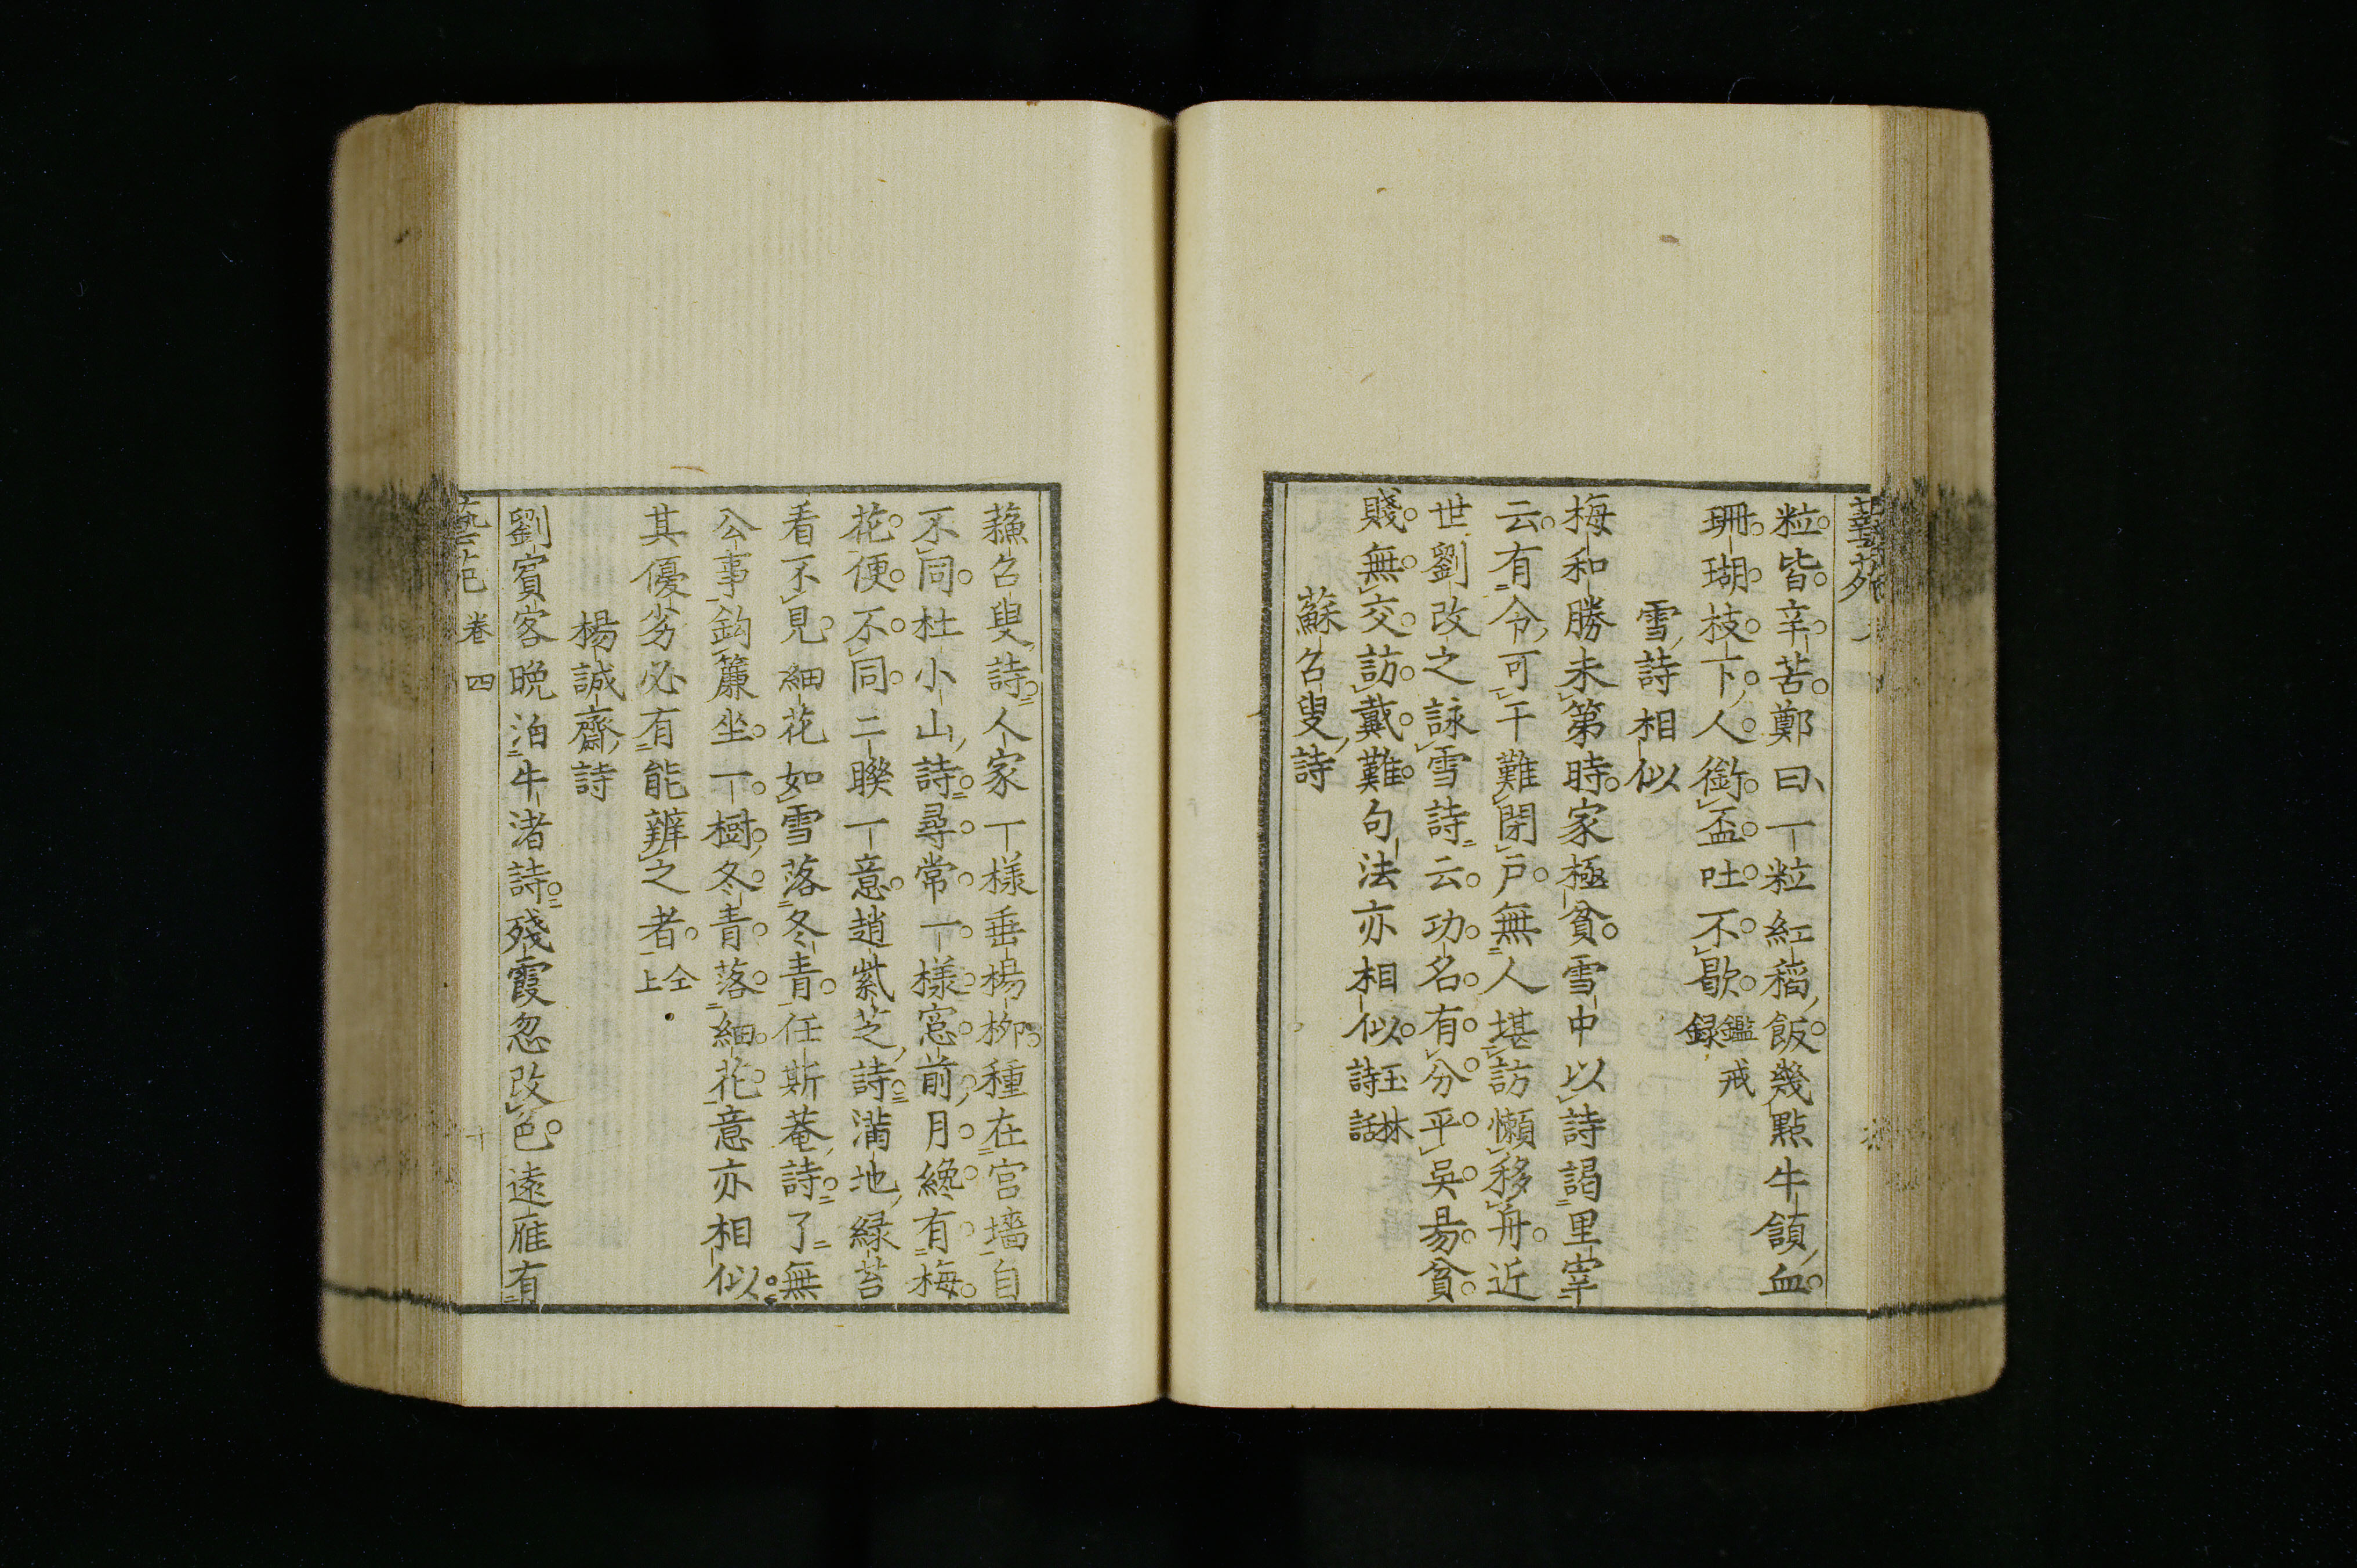 藝苑
粒皆辛苦鄭曰一粒紅稻飯幾點牛頷血
珊瑚枝下人銜盃吐不歇鑑戒録
雪詩相似
梅和勝未第時家極貧雪中以詩謁里宰
云有令可干難閉戸無人堪訪懶移舟近
世劉改之詠雪詩云功名有分平吳易貧
賤無交訪戴難句法亦相似玉林詩話
蘇召叟詩
蘓召叟詩人家一樣垂楊栁種在宫墻自
不同杜小山詩尋常一樣窓前月纔有梅
花便不同二聨一意趙紫芝詩滿地緑苔
看不見細花如雪落冬青任斯菴詩了無
公事鈎簾坐一樹冬青落細花意亦相似
其優劣必有能辨之者仝上
楊誠齋詩
劉賓客晩泊牛渚詩殘霞忽改色遠雁有
藝苑 卷四